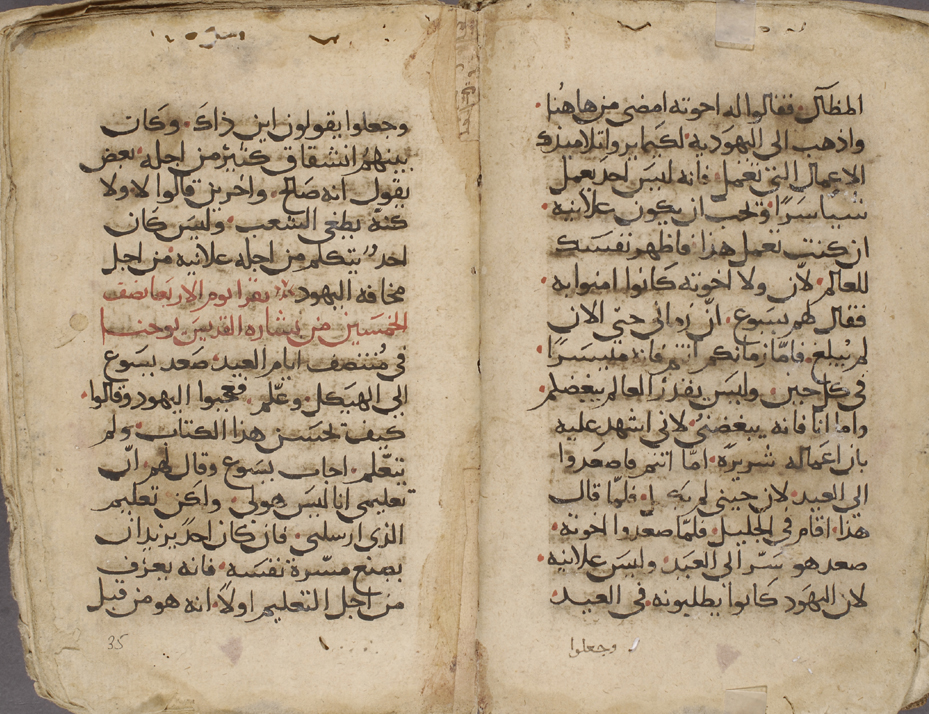 المظال. فقالوا له اخوته امضي من هاهنا.
واذهب الى اليهودية. لكيما يروا تلاميذك
الاعمال التي تعمل. فانه ليس احد يعمل
شياً سرًا. وتحب ان يكون علانيه.
ان كنت تعمل هذا. فاظهر نفسك
للعالم. لان ولا اخوته كانوا امنوا به.
فقال لهم يسوع. ان زماني حتى الان
لم يبلغ. فامّا زمانكم انتم فانه متيسرًا.
في كل حين. وليس يقدر العالم يبغضكم
واما انا فانه يبغضني. لاني اشهد عليه
بان اعماله شريرة. امّا انتم فاصعدوا
الى العيد. لان حيني لم يكمل. فلمّا قال
هذا. اقام في الجليل. فلمّا صعدوا اخوته.
صعد هو سرّ الى العيد. وليس علانيه.
لان اليهود كانوا يطلبونه في العيد.
وجعلوا
وجعلوا يقولون اين ذاك. وكان
بينهم انشقاق كثير من اجله. بعض
يقول انه صالح. واخرين قالوا لا ولا
كنه يطغي الشعب. وليس كان
احد يتكلم من اجله علانيه. من اجل
مخافه اليهود يقرا يوم الاربعا نصف
الخمسين من بشاره القديس يوحنا
في مُنتصف ايام العيد. صعد يسوع
الى الهيكل. وعلّم. فعجبوا اليهود وقالوا.
كيف تحسن هذا الكتاب. ولم
تتعلّم. اجاب يسوع وقال لهم انّ
تعليمي انا ليس هو لي. ولكن تعليم
الذي ارسلني. فان كان احدً يريد ان
يصنع مسّرة نفسه. فانه يعرف
من اجل التعليم اولاً. انه هو من قبل
35